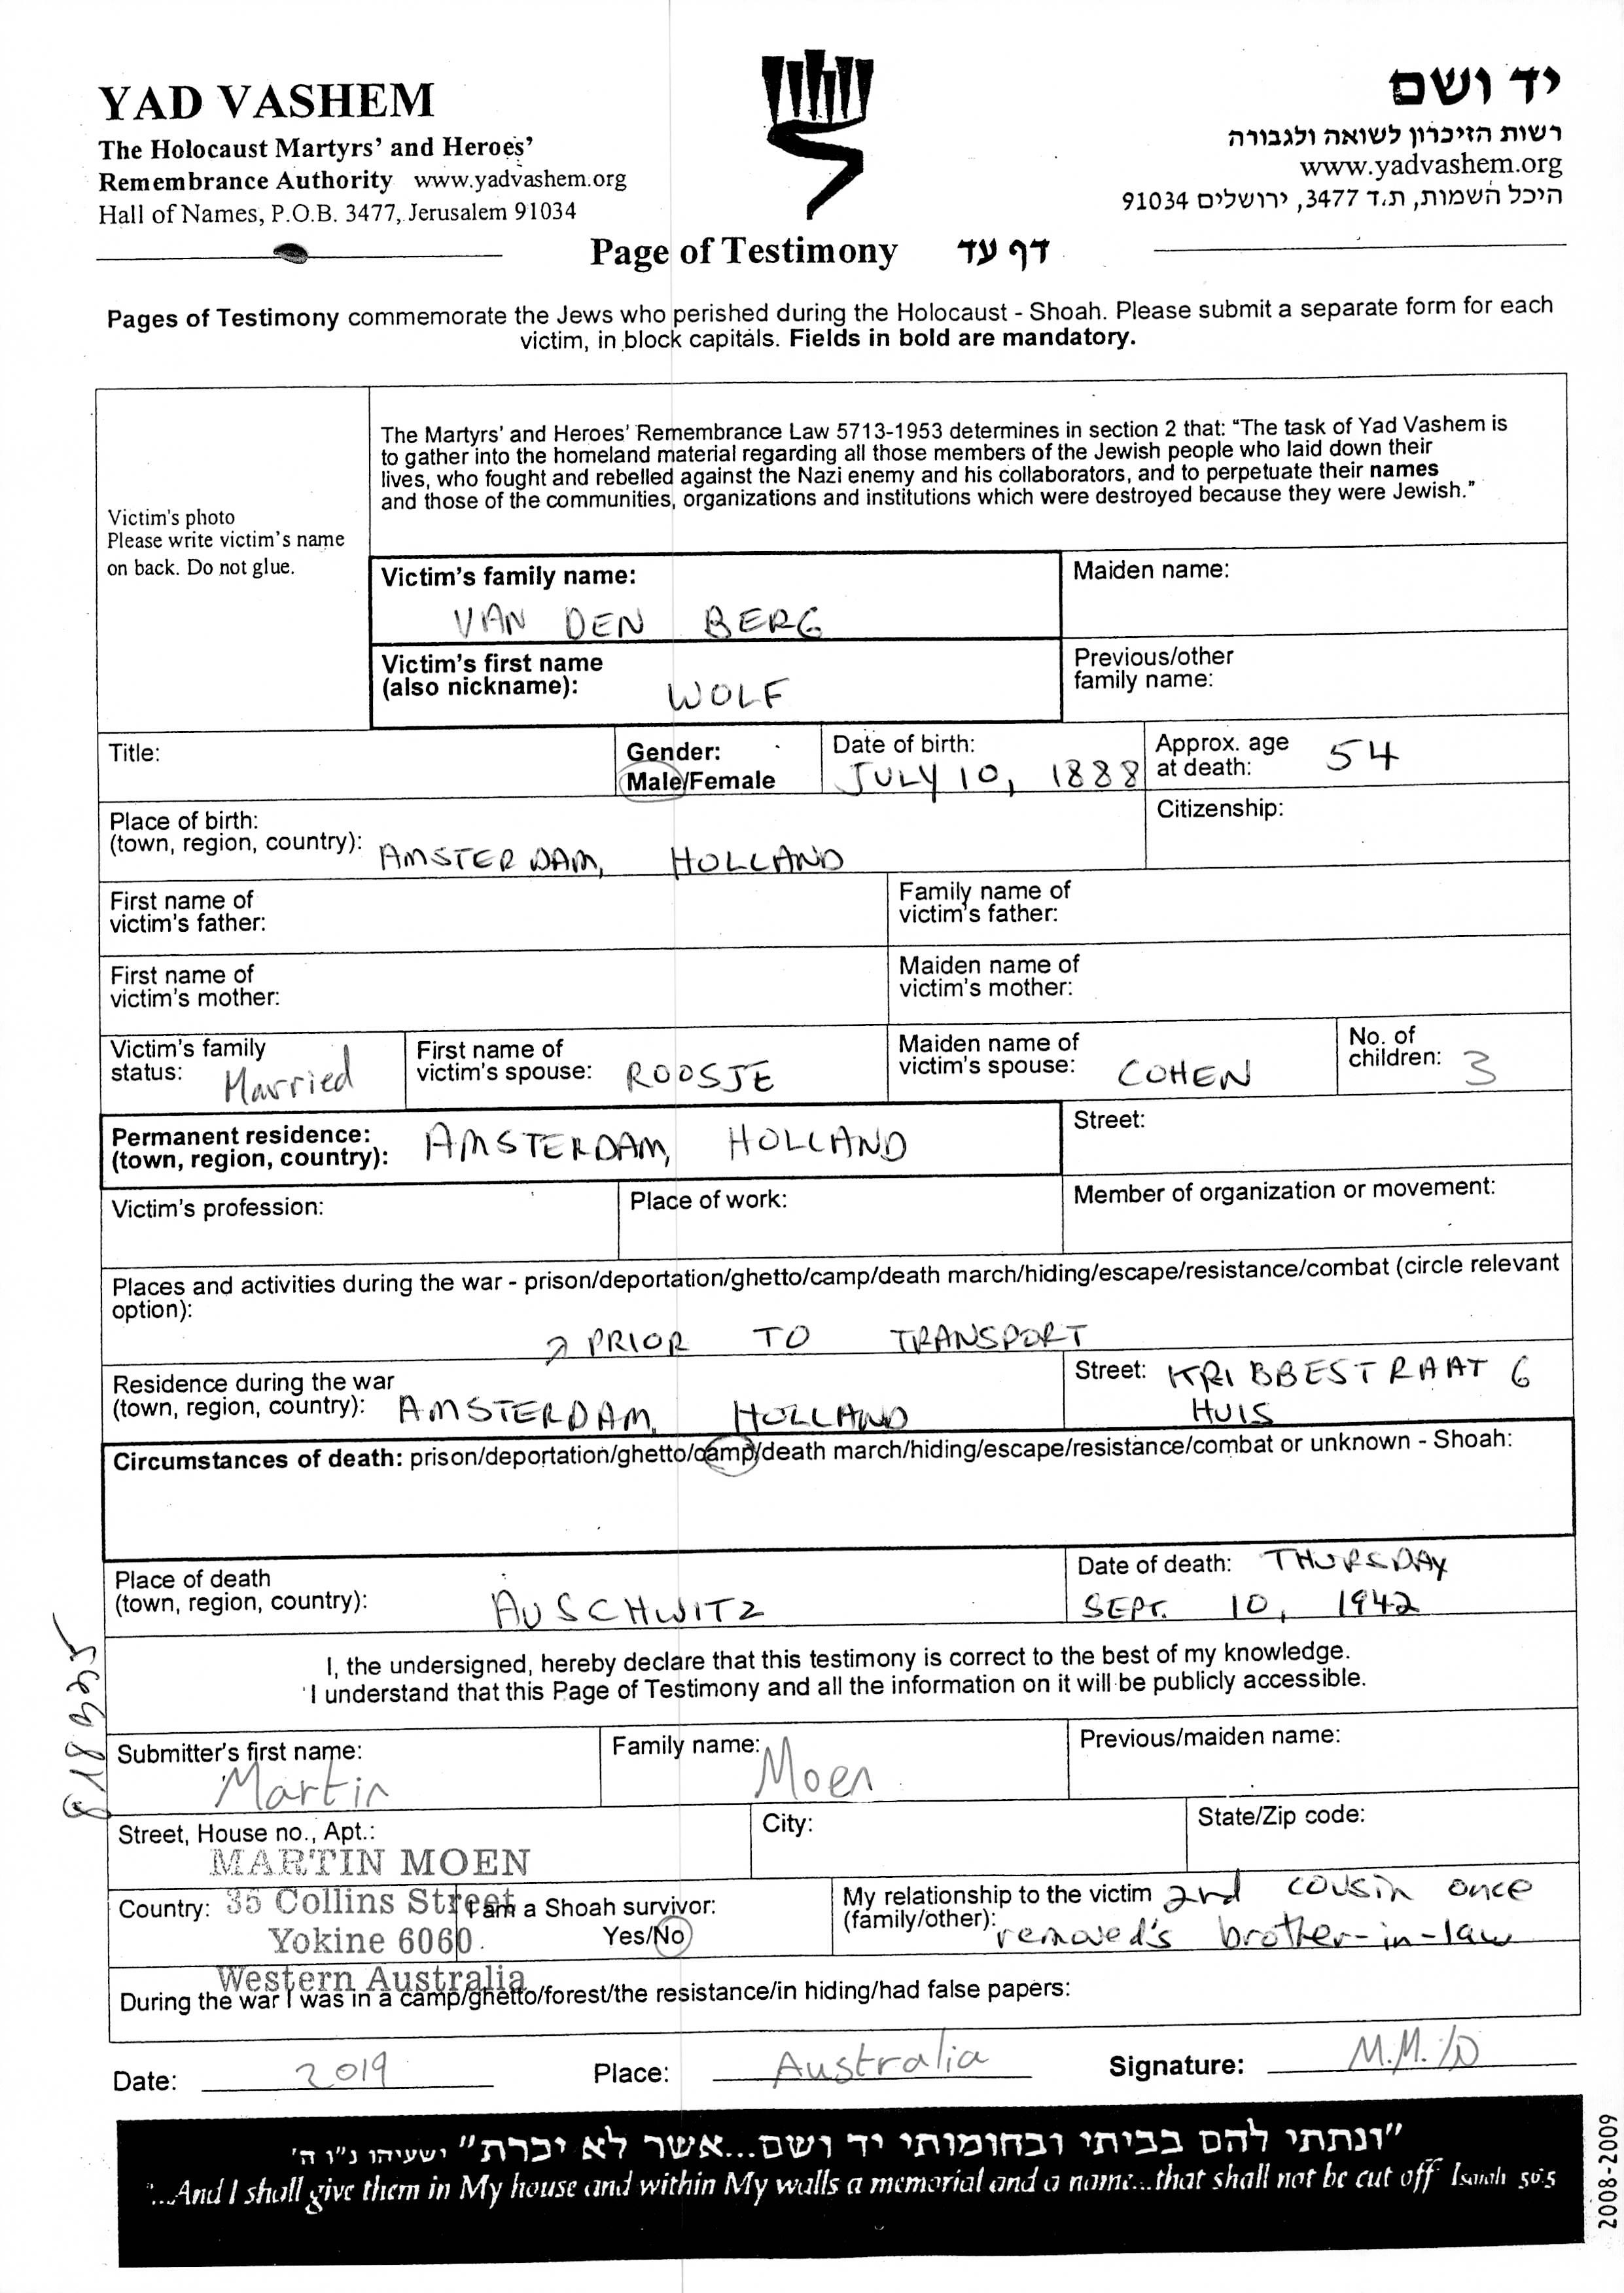 YAD VASHEM
The Holocaust Martyrs' and Heroes'
Remembrance Authority www.yadvashem.org
Hall of Names, P.O.B. 3477, Jerusalem 91034
יד ושם
רשות הזיכרון לשואה ולגבורה
www.yadvashem.org
היכל השמות, ת.ד 3477, ירושלים 91034
Page of Testimony דף עד
Pages of Testimony commemorate the Jews who perished during the Holocaust - Shoah. Please submit a separate form for each
victim, in block capitals. Fields in bold are mandatory.
Victim's photo
Please write victim's name
on back. Do not glue.
The Martyrs' and Heroes' Remembrance Law 5713-1953 determines in section 2 that: "The task of Yad Vashem is
to gather into the homeland material regarding all those members of the Jewish people who laid down their
lives, who fought and rebelled against the Nazi enemy and his collaborators, and to perpetuate their names
and those of the communities, organizations and institutions which were destroyed because they were Jewish."
Victim's family name:
VAN DEN BERG
Maiden name:
Victim's first name
(also nickname): WOLF
Previous/other
family name:
Title:
Gender:
Male/Female
Date of birth:
JULY 10, 1888
Approx. age
at death: 54
Place of birth:
(town, region, country): AMSTERDAM, HOLLAND
Citizenship:
First name of
victim's father:
Family name of
victim's father:
First name of
victim's mother:
Maiden name of
victim's mother:
Victim's family
status: Married
First name of
victim's spouse: ROOSJE
Maiden name of
victim's spouse: COHEN
No. of
children: 3
Permanent residence:
(town, region, country): AMSTERDAM, HOLLAND
Street:
Victim's profession:
Place of work:
Member of organization or movement:
Places and activities during the war - prison/deportation/ghetto/camp/death march/hiding/escape/resistance/combat (circle relevant
option):
PRIOR TO TRANSPORT
Residence during the war
(town, region, country): AMSTERDAM, HOLLAND
Street: KRIBBESTRAAT 6
HUIS
Circumstances of death: prison/deportation/ghetto/camp/death march/hiding/escape/resistance/combat or unknown - Shoah:
Place of death
(town, region, country): AUSCHWITZ
Date of death: THURSDAY
SEPT. 10, 1942
I, the undersigned, hereby declare that this testimony is correct to the best of my knowledge.
I understand that this Page of Testimony and all the information on it will be publicly accessible.
Submitter's first name:
Martin
Family name:
Moen
Previous/maiden name:
Street, House no., Apt.:
MARTIN MOEN
City:
State/Zip code:
Country: 35 Collins Street
Yokine 6060
Western Australia
I am a Shoah survivor:
Yes/No
My relationship to the victim 2nd cousin once
(family/other): removed's brother-in-law
During the war I was in a camp/ghetto/forest/the resistance/in hiding/had false papers:
Date: 2019
Place: Australia
Signature:
"ונתתי להם בביתי ובחומותי יד ושם...אשר לא יכרת" ישעיהו נ"ו ה'
"...And I shall give them in My house and within My walls a memorial and a name...that shall not be cut off" Isaiah 56:5
2008-2009